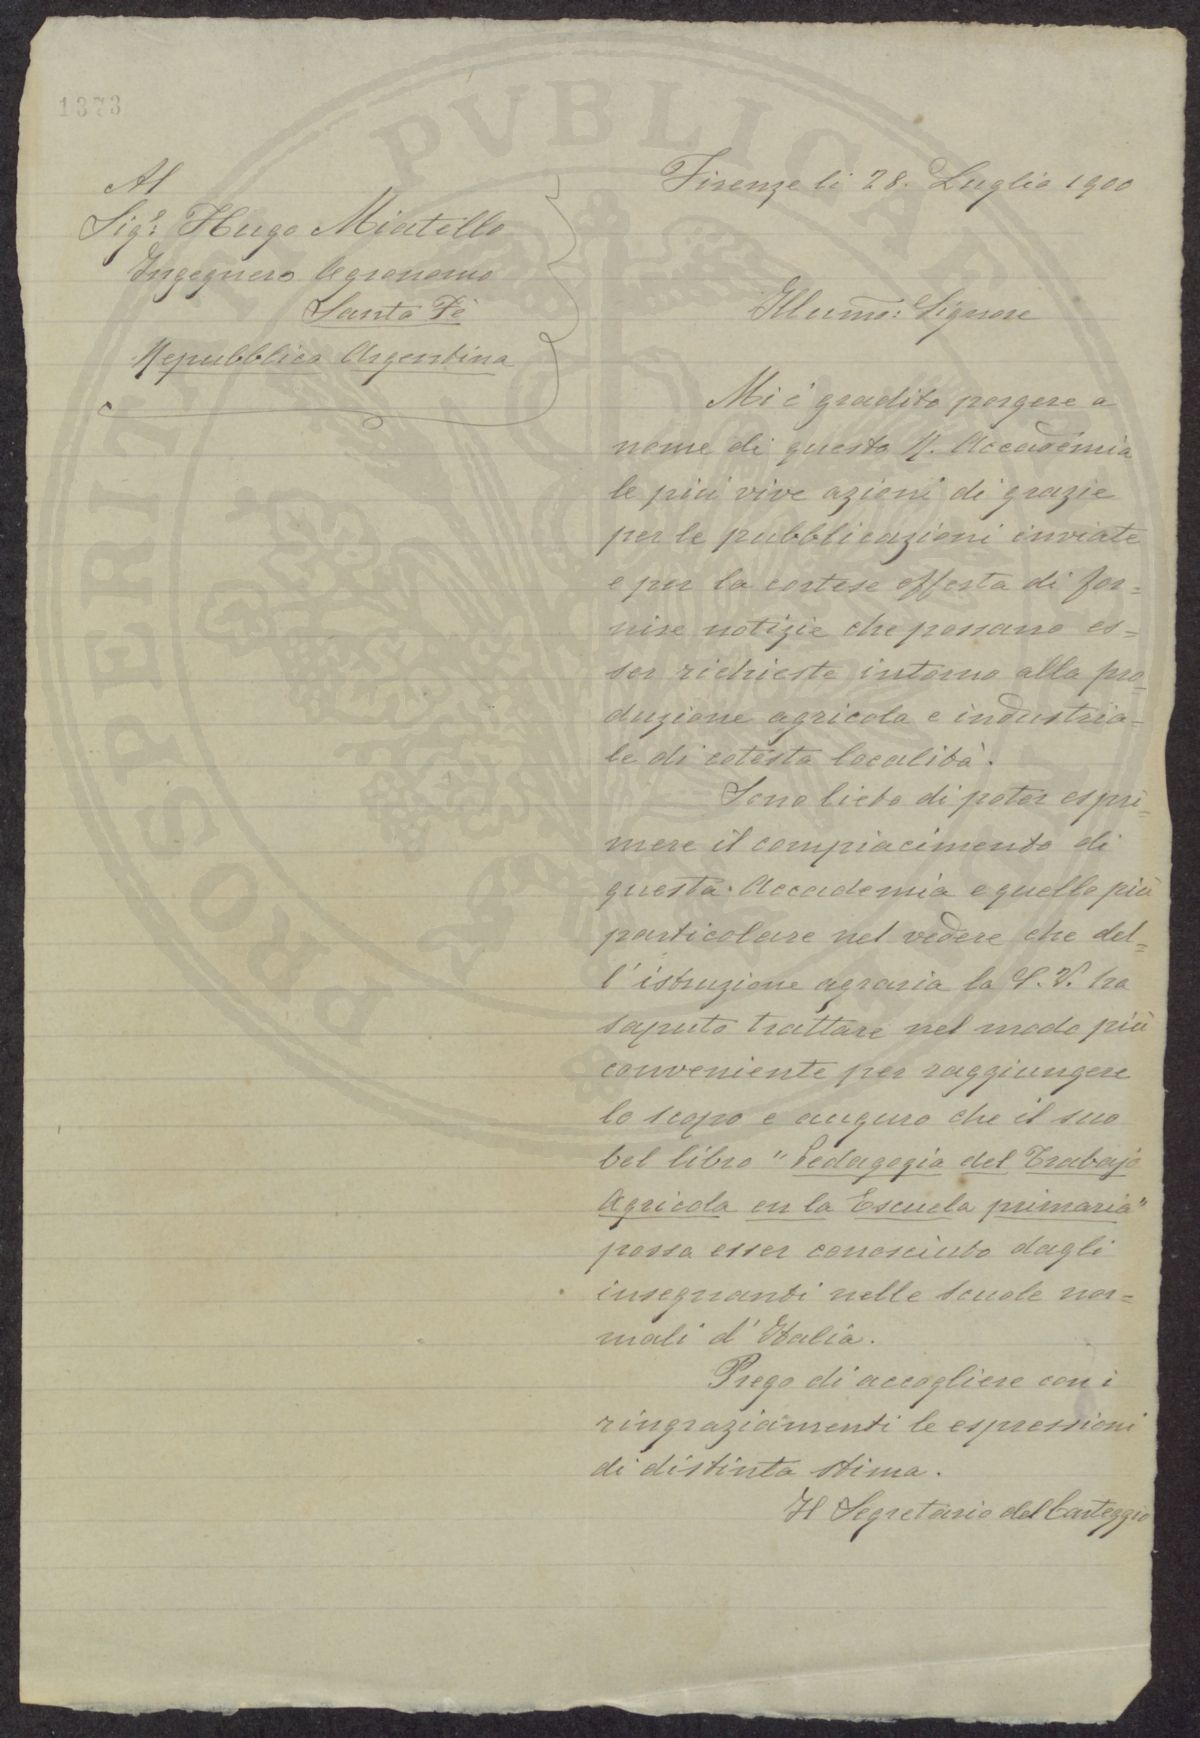 1373
Al
Sigr: Hugo Miatello
Ingegnere Agronomo
Santa Fè
Repubblica Argentina
Firenze li 28. Luglio 1900
Illumo: Signore
Mi è gradito porgere a
nome di questa R. Accademia
le più vive azioni di grazie
per le pubblicazioni inviate
e per la cortese offerta di for=
nire notizie che possano es=
ser richieste intorno alla pro=
duzione agricola e industria=
le di cotesta località.
Sono lieto di poter espri=
mere il compiacimento di
questa Accademia e quello più
particolare nel vedere che del=
l'istruzione agraria la S.V. ha
saputo trattare nel modo più
conveniente per raggiungere
lo scopo e auguro che il suo
bel libro "Pedagogia del Trabajo
Agricola en la Escuela primaria"
possa esser conosciuto dagli
insegnanti nelle scuole nor=
mali d'Italia.
Prego di accogliere con i
ringraziamenti le espressioni
di distinta stima.
Il Segretario del Carteggio
PROSPERITATI PVBLICAE